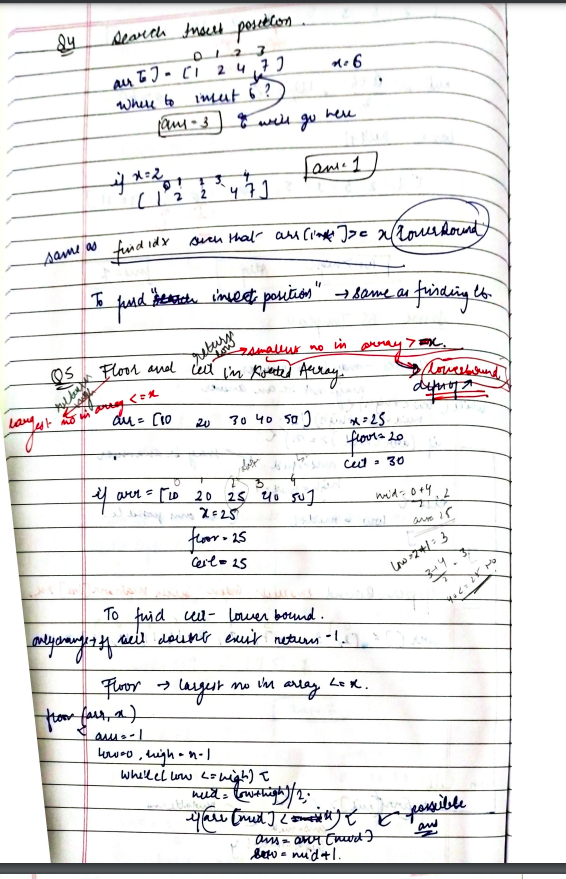 Q4 Search Insert position.
0 1 2 3
arr[] = [1 2 4 7] x=6
where to insert 6?
ans = 3 6 will go here
if x=2 ans = 1
0 1 2 3 4
[1 2 2 4 7]
same as find idx such that arr[idx] >= x lower bound
To find "insert position" → same as finding lb.
return low → smallest no in array >= x.
Q5 Floor and Ceil in Sorted Array. lowerbound
return high defn of ↗
largest no in array <= x
arr = [10 20 30 40 50] x=25
floor = 20
ceil = 30
0 1 2 3 4
if arr = [10 20 25 40 50]
x=25
floor = 25
ceil = 25
mid = 0+4/2 = 2
ans = 25
low = 2+1 = 3
3+4/2 = 3
To find ceil - lower bound.
only change → If ceil doesn't exist return -1.
Floor → largest no in array <= x.
floor (arr, x)
{
ans = -1
low=0, high = n-1
while (low <= high) {
mid = (low+high)/2;
if (arr[mid] <= x) { ← possible ans
ans = arr[mid]
low = mid+1.